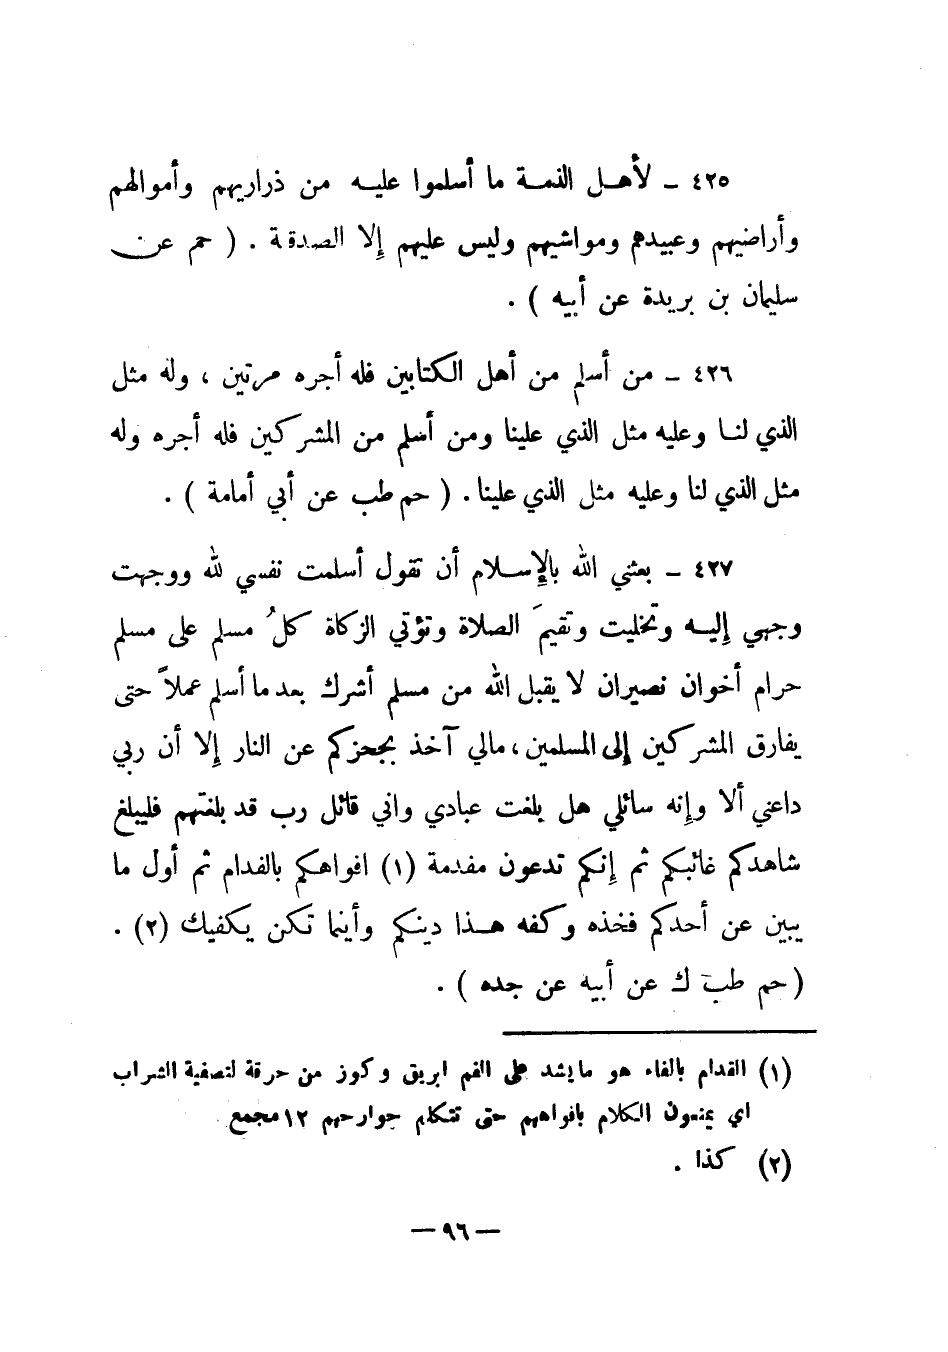 ٤٢٥ ـ لأهل الذمة ما أسلموا عليه من ذراريهم وأموالهم
وأراضيهم وعبيدهم ومواشيهم وليس عليهم إلا الصدقة . ( حم عن
سليمان بن بريدة عن أبيه ) .
٤٢٦ ـ من أسلم من أهل الكتابين فله أجره مرتين ، وله مثل
الذي لنا وعليه مثل الذي علينا ومن أسلم من المشركين فله أجره وله
مثل الذي لنا وعليه مثل الذي علينا . ( حم طب عن أبي أمامة ) .
٤٢٧ ـ بعثني الله بالإسلام أن تقول أسلمت نفسي لله ووجهت
وجهي إليه وتخليت وتقيمَ الصلاة وتؤتي الزكاة كلُ مسلم على مسلم
حرام أخوان نصيران لا يقبل الله من مسلم أشرك بعد ما أسلم عملاً حتى
يفارق المشركين إلى المسلمين ، مالي آخذ بحجزكم عن النار إلا أن ربي
داعني ألا وإنه سائلي هل بلغت عبادي واني قائل رب قد بلغتهم فليبلغ
شاهدكم غائبكم ثم إنكم تدعون مفدمة (١) افواهكم بالفدام ثم أول ما
يبين عن أحدكم فخذه وكفه هذا دينكم وأينما تكن يكفيك (٢) .
( حم طب ك عن أبيه عن جده ) .
(١) الفدام بالفاء هو ما يشد على الفم ابريق وكوز من خرقة لتصفية الشراب
اي يمنعون الكلام بافواههم حتى تتكلم جوارحهم ١٢ مجمع
(٢) كذا .
— ٩٦ —